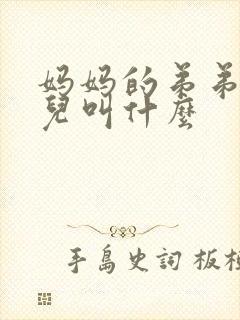 妈妈的弟弟
兒叫什麼
手島史詞 板植